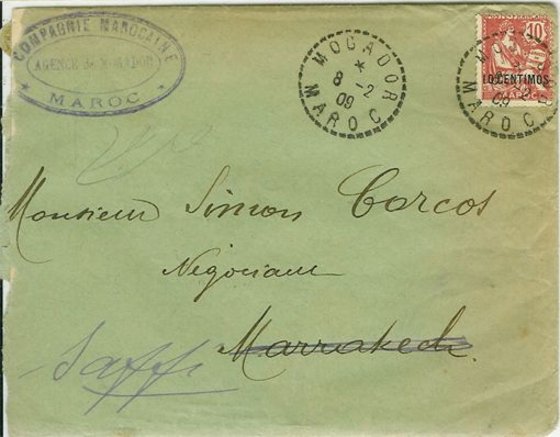 COMPAGNIE MAROCAINE
AGENCE de MOGADOR
* MAROC *
MOGADOR
*
8 -2
09
MAROC
10
10 CENTIMOS
MO
09
MAROC
Monsieur Simon Corcos
Negociant
Marrakech
Saffi